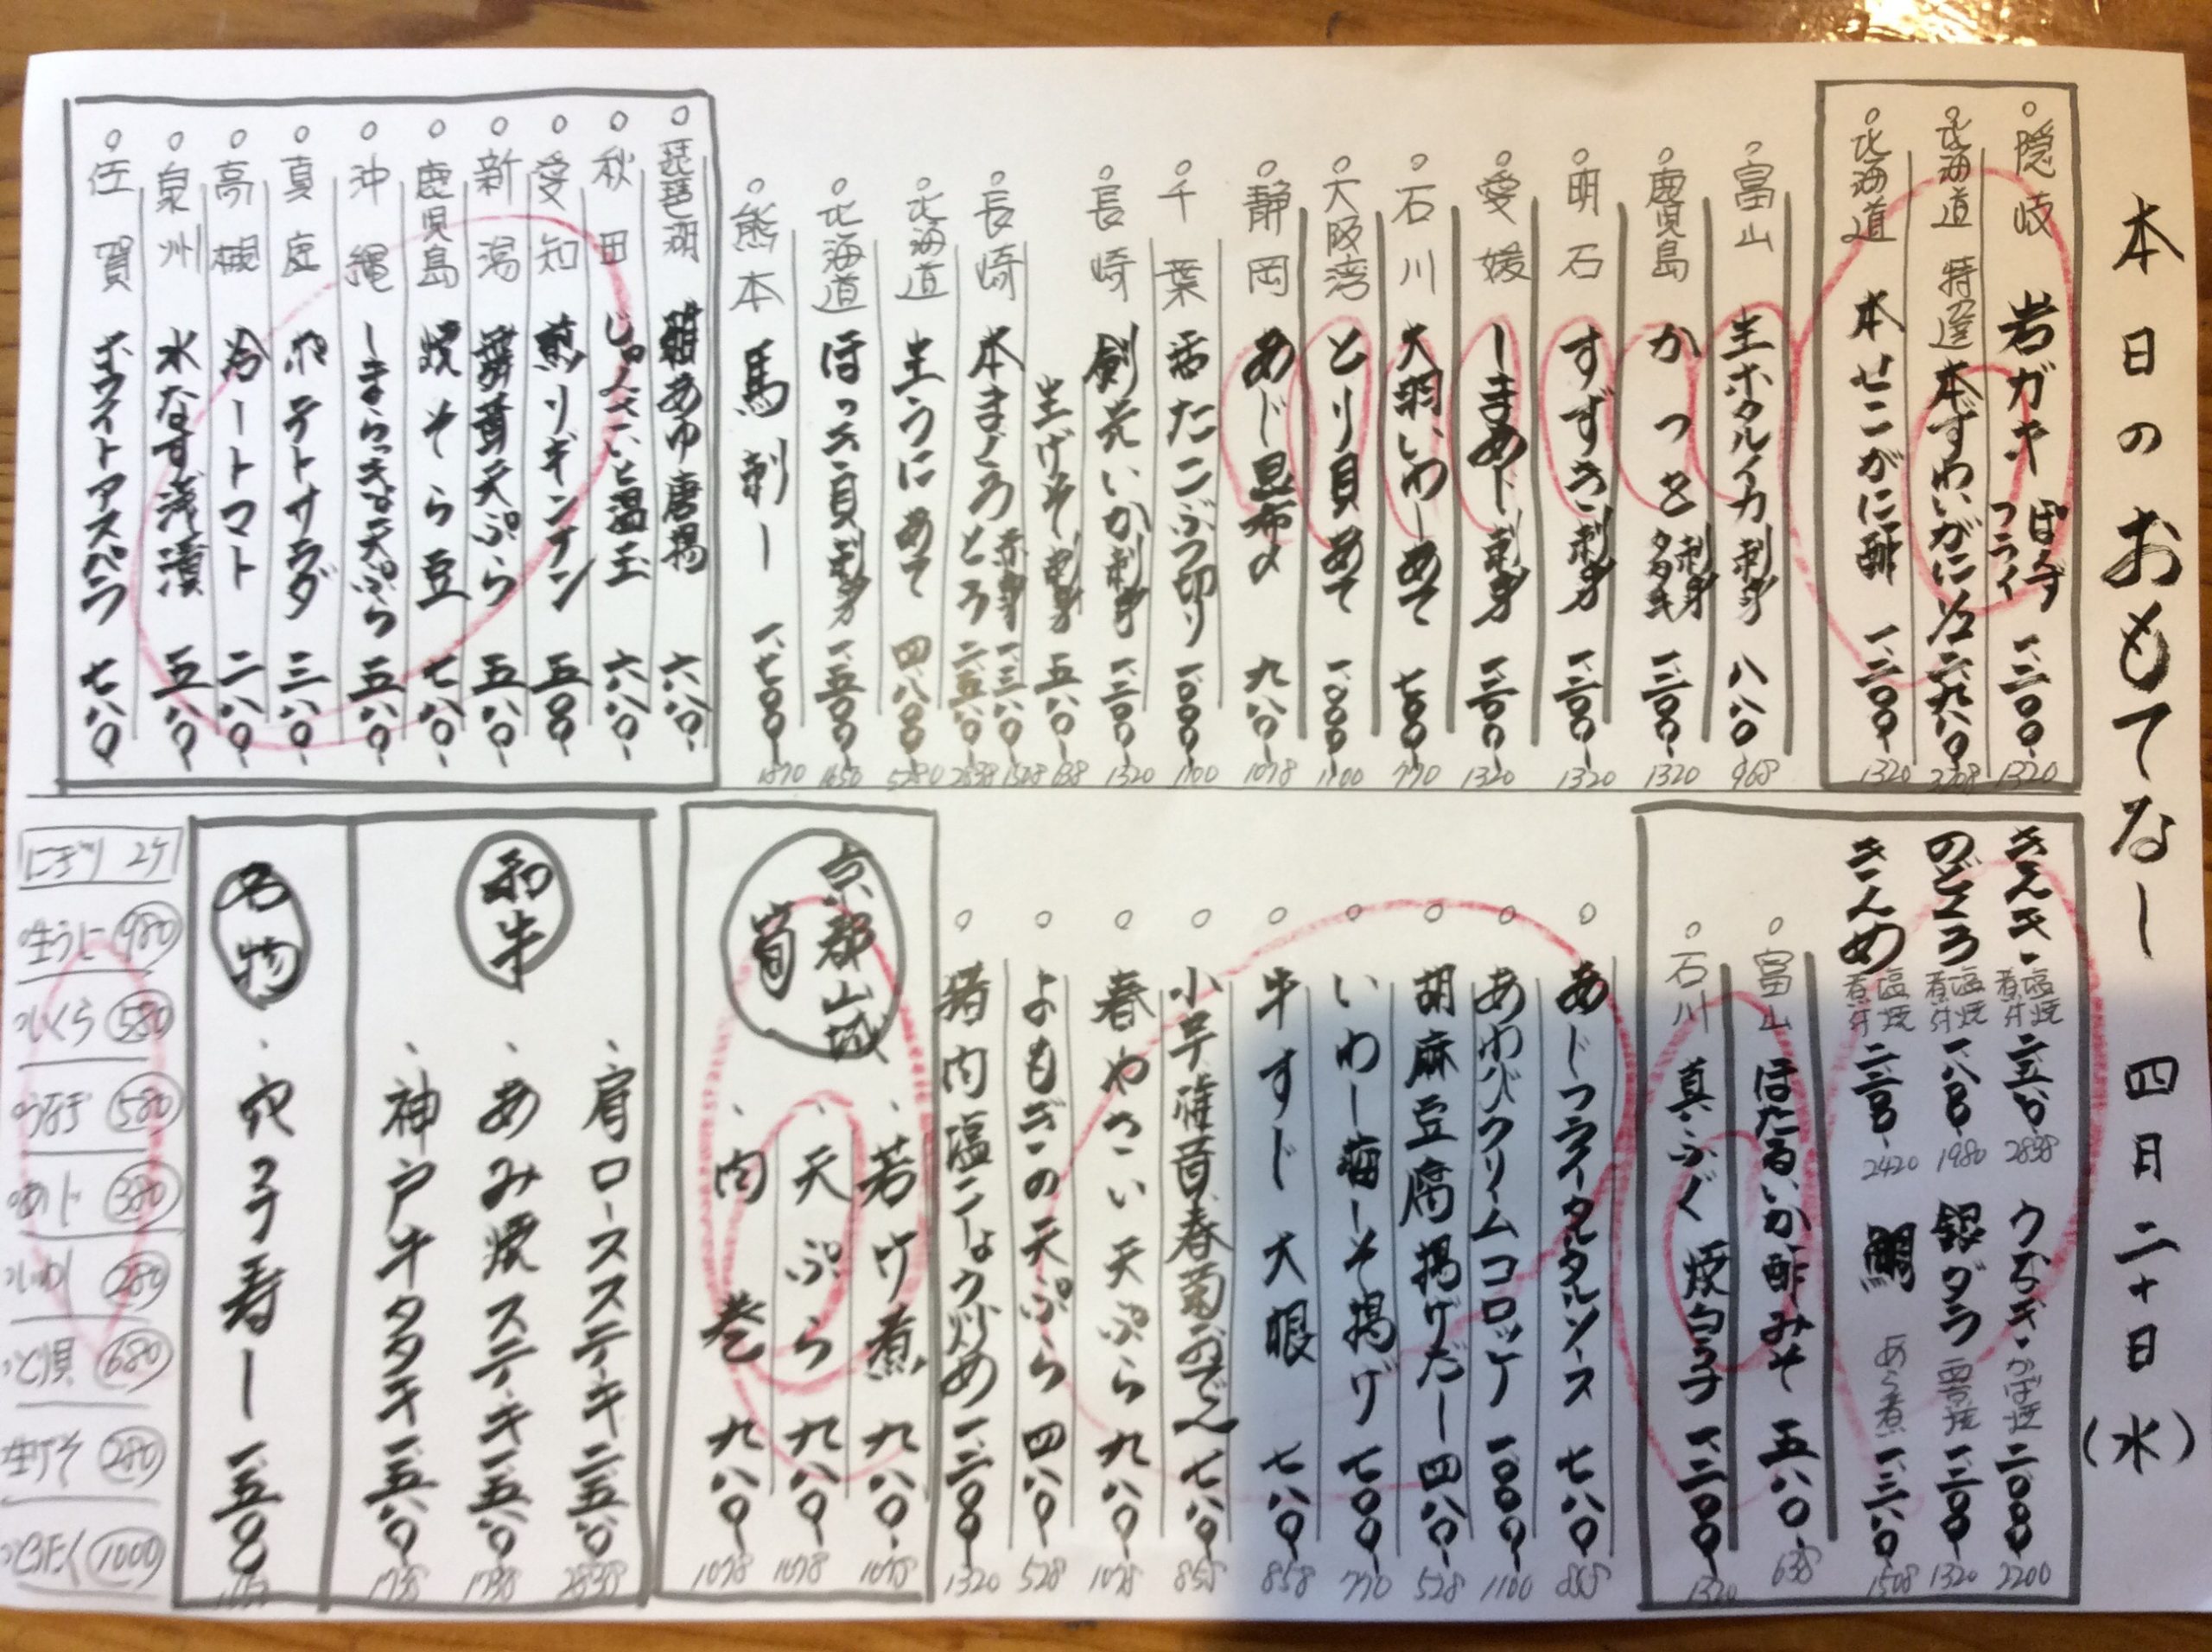 本日のおもてなし 四月二十日(水)
隠岐 岩ガキ ぽんず フライ 一、二〇〇- 1320
北海道 特選 本ずわいがに 二、九八〇-
北海道 本せこがに酢 一、二〇〇- 1320
富山 生ホタルイカ刺身 八八〇- 968
鹿児島 かつを 刺身 タタキ 一、二〇〇- 1320
明石 すずき刺身 一、二〇〇- 1320
愛媛 しまあじ刺身 一、二〇〇- 1320
石川 大羽いわしあて 七〇〇- 770
大阪湾 とり貝あて 一、〇〇〇- 1100
静岡 あじ昆布〆 九八〇- 1078
千葉 活たこぶつ切り 一、〇〇〇- 1100
長崎 剣先いか刺身 一、二〇〇- 1320
生げそ刺身 五八〇- 638
長崎 本まぐろ 赤身 一、三八〇- 1508
とろ 二、五八〇- 2838
北海道 生うにあて 四、八〇〇- 5280
北海道 ほっき貝刺身 一、五〇〇- 1650
熊本 馬刺し 一、七〇〇- 1870
琵琶湖 稚あゆ唐揚 六八〇-
秋田 じゅんさいと温玉 六八〇-
愛知 煎りギンナン 五〇〇-
新潟 舞茸天ぷら 五八〇-
鹿児島 焼そら豆 七八〇-
沖縄 しまらっきょ天ぷら 五八〇-
真庭 ポテトサラダ 三八〇-
高槻 冷しトマト 二八〇-
泉州 水なす浅漬 五八〇-
佐賀 ホワイトアスパラ 七八〇-
きんき 塩焼 煮付 二、五八〇- 2838
のどぐろ 塩焼 煮付 一、八〇〇- 1980
きんめ 塩焼 煮付 二、二〇〇- 2420
うなぎ かば焼 二、〇〇〇- 2200
銀ダラ 西京焼 一、二〇〇- 1320
鯛 あら煮 一、三八〇- 1508
富山 ほたるいか酢みそ 五八〇- 638
石川 真ふぐ 焼白子 一、二〇〇- 1320
あじフライタルタルソース 七八〇- 858
あわびクリームコロッケ 一、〇〇〇- 1100
胡麻豆腐揚げだし 四八〇- 528
いわし梅しそ揚げ 七〇〇- 770
牛すじ大根 七八〇- 858
小芋 椎茸 春菊のおでん 七八〇- 858
春やさい天ぷら 九八〇- 1078
よもぎの天ぷら 四八〇- 528
豚肉塩こしょう炒め 一、二〇〇- 1320
京都山城 筍
若竹煮 九八〇- 1078
天ぷら 九八〇- 1078
肉巻 九八〇- 1078
和牛
肩ロースステーキ 二、五八〇 2838
あみ焼ステーキ 一、五八〇- 1738
神戸牛タタキ 一、五八〇- 1738
名物
穴子寿し
にぎり 2ケ
生うに 980
いくら 580
うなぎ 580
あじ 380
いわし 280
とり貝 680
生げそ 280
1000